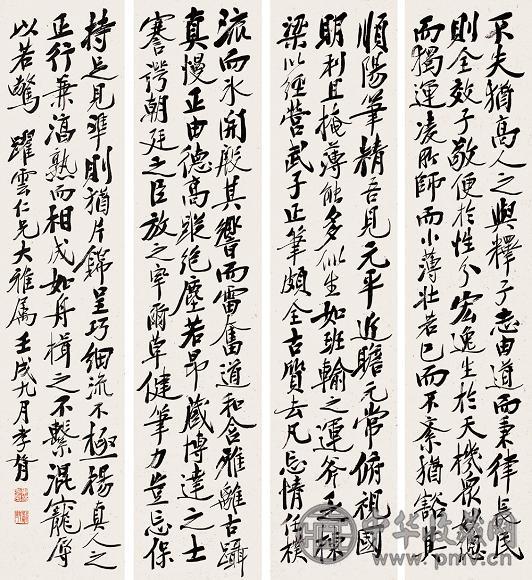 不夫猶高人之與釋子志由道而秉律長民
則全效子敬便於性分宏逸生於天機眾
而獨運凌所師而小薄壯若已而不紊猶豁其
順陽筆精吾見元平近瞻元常俯視國
朗利且掩薄能多似生如班輸之運斧乏棟
梁以經營武子正筆頗全古質去凡忘情任樸
流而冰開殷其響而雷奮道和合雅離古躡
真慢正由德高蹤絕塵若昂藏博達之士
謇諤朝廷之臣放之率爾草健筆力豈忘保
持足見準則猶片錦呈巧細流不極楊真人之
正行兼淳熟而相成如舟楫之不繫混寵辱
以若驚 躍雲仁兄大雅屬 壬戌九月李健
中华收藏网